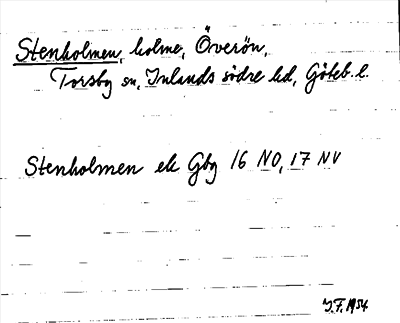 Stenholmen, holme, Överön,
Torsby sn, Inlands södre hd, Göteb. l.
Stenholmen ek Gbg 16 NO, 17 NV
J.F. 1954